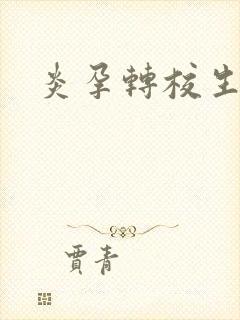 炎孕轉校生
賈青